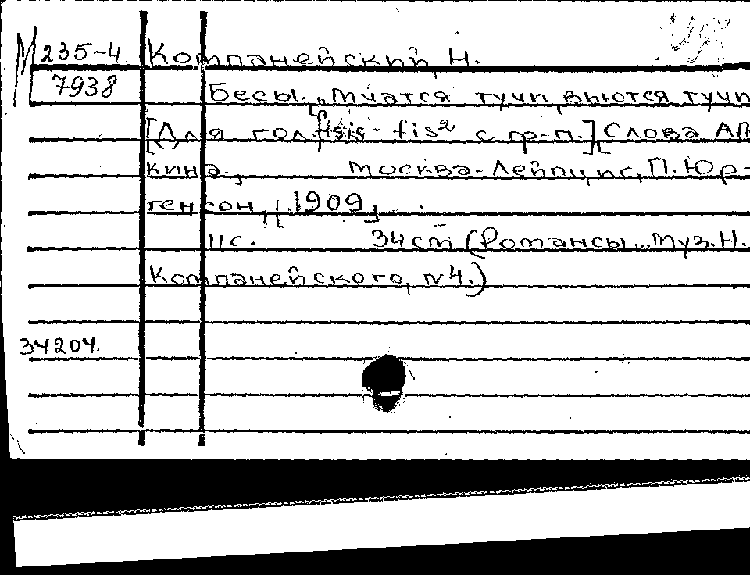 М 235-4 Компанейский, Н.
7938 Бесы. „Мчатся тучи, вьются тучи
[Для гол. fisis - fis² с ф-п.] Слова А.П
кина,         Москва-Лейпциг, П. Юр-
генсон, [1909]
11 с.         34 см (Романсы... муз. Н.
Компанейского, № 4.)
34204